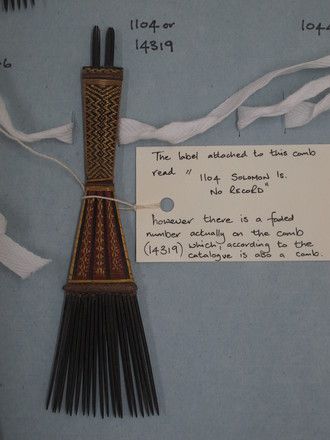 1104 or
14319
104
6
The label attached to this comb
read " 1104 SOLOMON IS.
NO RECORD"
however there is a faded
number actually on the comb
(14319) which, according to the
catalogue is also a comb.